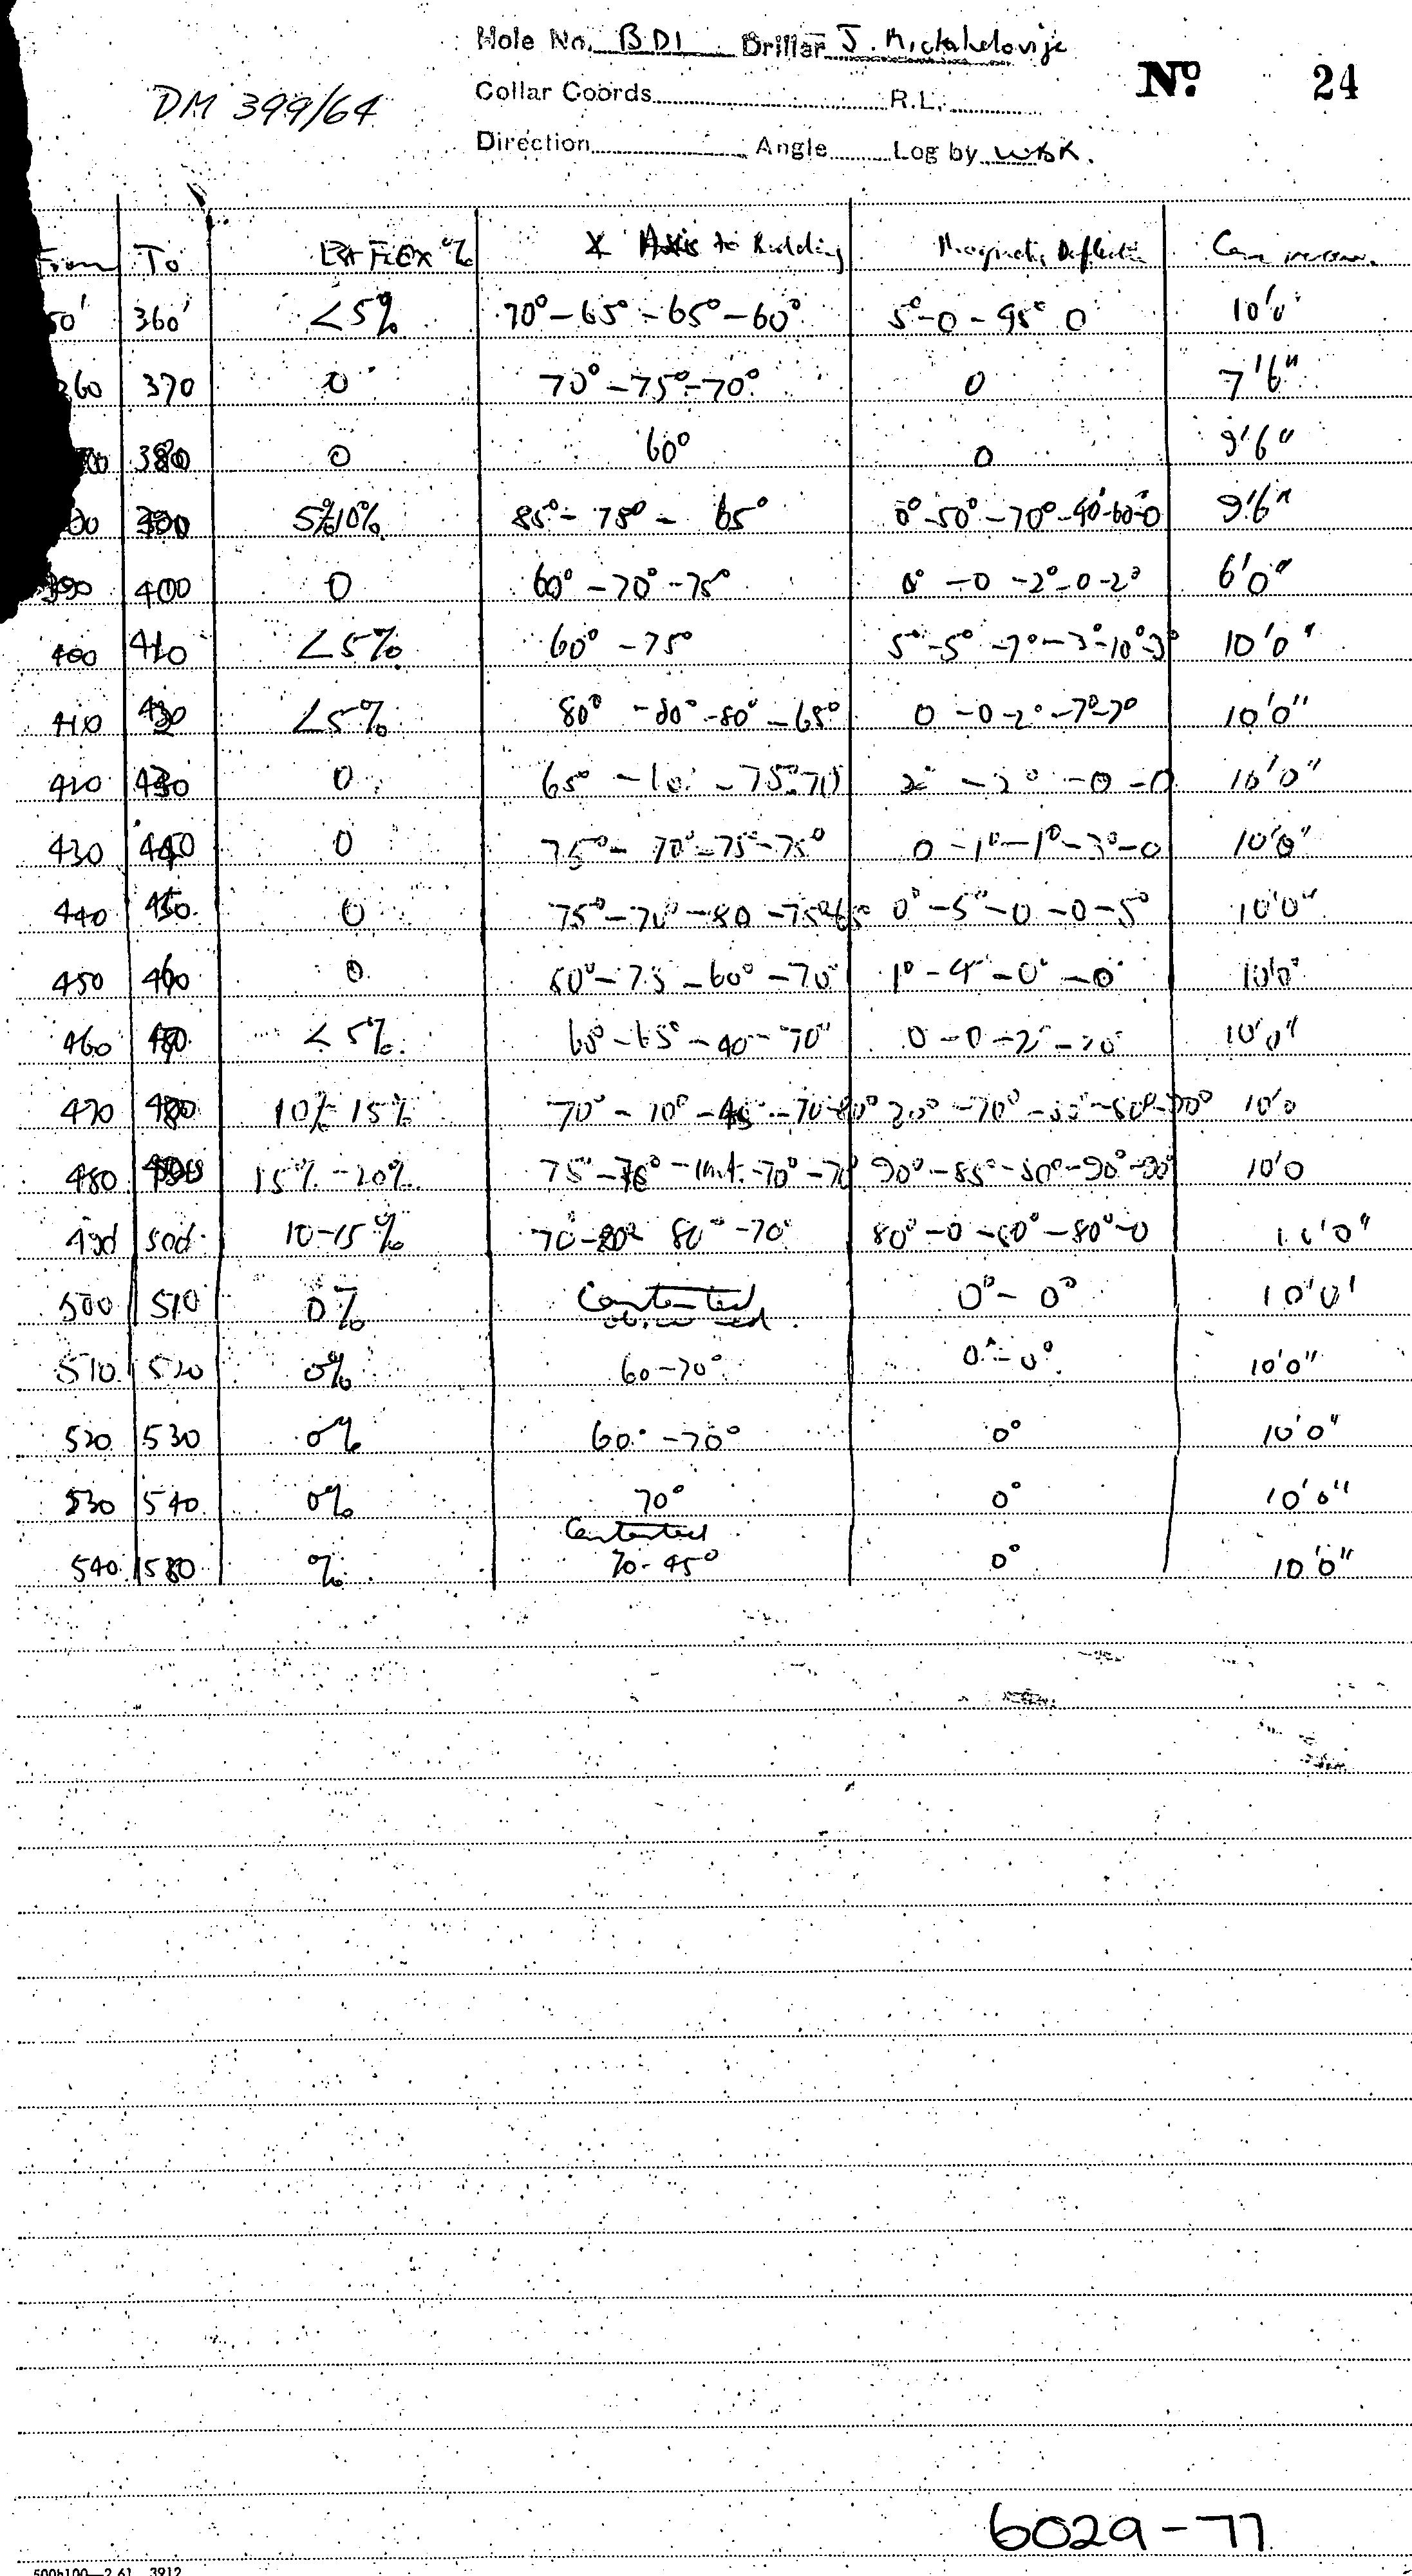 Hole No. BD1 Driller J.
Nº 24
Collar Coords. R.L.
DM 399/64
Direction Angle Log by WBK.
From To Est FeOx % Axis to Bedding Magnetic Deflection Core
50' 360' <5% 70° - 65° - 65° - 60° 5° - 0 - 95° 0 10'0"
360 370 0 70° - 75° - 70° 0 7'6"
380 0 60° 0 9'6"
390 5% 10% 85° - 75° - 65° 0° - 50° - 70° - 90° - 60 - 0 9'6"
390 400 0 60° - 70° - 75° 0° - 0 - 2° - 0 - 2° 6'0"
400 410 <5% 60° - 75° 5° - 5° - 7° - 3° - 10° - 3° 10'0"
410 420 <5% 80° - 80° - 80° - 65° 0 - 0 - 2° - 7° - 7° 10'0"
420 430 0 65° - 60° - 75° - 70 2° - 2° - 0 - 0 10'0"
430 440 0 75° - 70° - 75 - 75° 0 - 1° - 1° - 3° - 0 10'0"
440 450 0 75° - 70° - 80 - 75° 65° 0° - 5° - 0 - 0 - 5° 10'0"
450 460 0 60° - 75 - 60° - 70° 1° - 4° - 0° - 0° 10'0"
460 470 <5% 60° - 65° - 40 - 70° 0 - 0 - 2° - 20° 10'0"
470 480 10% 15% 70° - 70° - 45° - 70 - 80° 20° - 70° - 50° - 90° 10'0
480 490 15% - 20% 75° - 75° - - 70° - 70° 90° - 85° - 50° - 90° - 90° 10'0
490 500 10-15% 70 - 80° 80° - 70° 80° - 0 - 60° - 80° - 0 10'0"
500 510 0% Contorted 0° - 0° 10'0"
510 520 0% 60 - 70° 0° - 0° 10'0"
520 530 0% 60° - 70° 0° 10'0"
530 540 0% 70° 0° 10'0"
Contorted
540 580 % 70 - 45° 0° 10'0"
6029-77
500h100—2.61 3912